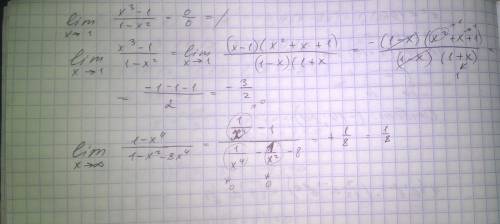 lim x→1 (x³-1)/(1-x²) = 0/0 = /
lim x→1 (x³-1)/(1-x²) = lim x→1 ((x-1)(x²+x+1))/((1-x)(1+x) = (-(1-x)(x²+x+1))/((1-x)(1+x)) =
= (-1-1-1)/2 = -3/2
lim x→∞ (1-x⁴)/(1-x²-8x⁴) = (1/x⁴ - 1)/(1/x⁴ - 1/x² - 8) = +1/8 = 1/8